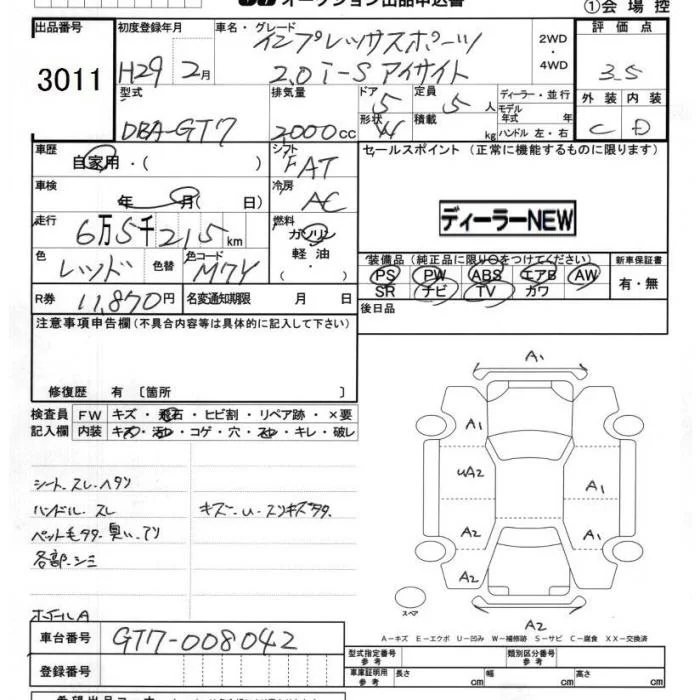 オークション出品申込書
①会場控
出品番号 初度登録年月 車名・グレード 評価点
3011 H29 2月 インプレッサスポーツ 2WD・4WD 3.5
2.0i-S アイサイト
型式 排気量 ドア 定員 ディーラー・並行 外装 内装
DBA-GT7 2000cc 5 5人 モデル年式 年 C D
形状 W 積載 kg ハンドル 左・右
車歴 シフト セールスポイント (正常に機能するものに限ります)
自家用・( ) FAT
車検 冷房
年 月( 日) AC
走行 燃料 ディーラーNEW
6万5千215km ガソリン
軽油
色 色替 色コード 装備品(純正品に限り○をつけてください) 新車保証書
レッド M7Y PS PW ABS エアB AW 有・無
SR ナビ TV カワ
R券 11,870円 名変通知期限 月 日 後日品
注意事項申告欄(不具合内容等は具体的に記入して下さい)
修復歴 有 〔箇所 〕
検査員 FW キズ・飛石・ヒビ割・リペア跡・×要
記入欄 内装 キズ・汚れ・コゲ・穴・スレ・キレ・破レ
シート.スレ.ヘタリ
ハンドル.スレ キズ・U・スリキズ多々.
ペット毛多々.臭い.アリ
各部.シミ
ホイールA
A1
A1
UA2 A1
A2 A1
A2
A2
スペア
A2
A−キズ E−エクボ U−凹み W−補修跡 S−サビ C−腐食 XX−交換済
車台番号 GT7-008042 型式指定番号 参考 類別区分番号 参考
登録番号 車庫証明用 参考 長さ cm 幅 cm 高さ cm